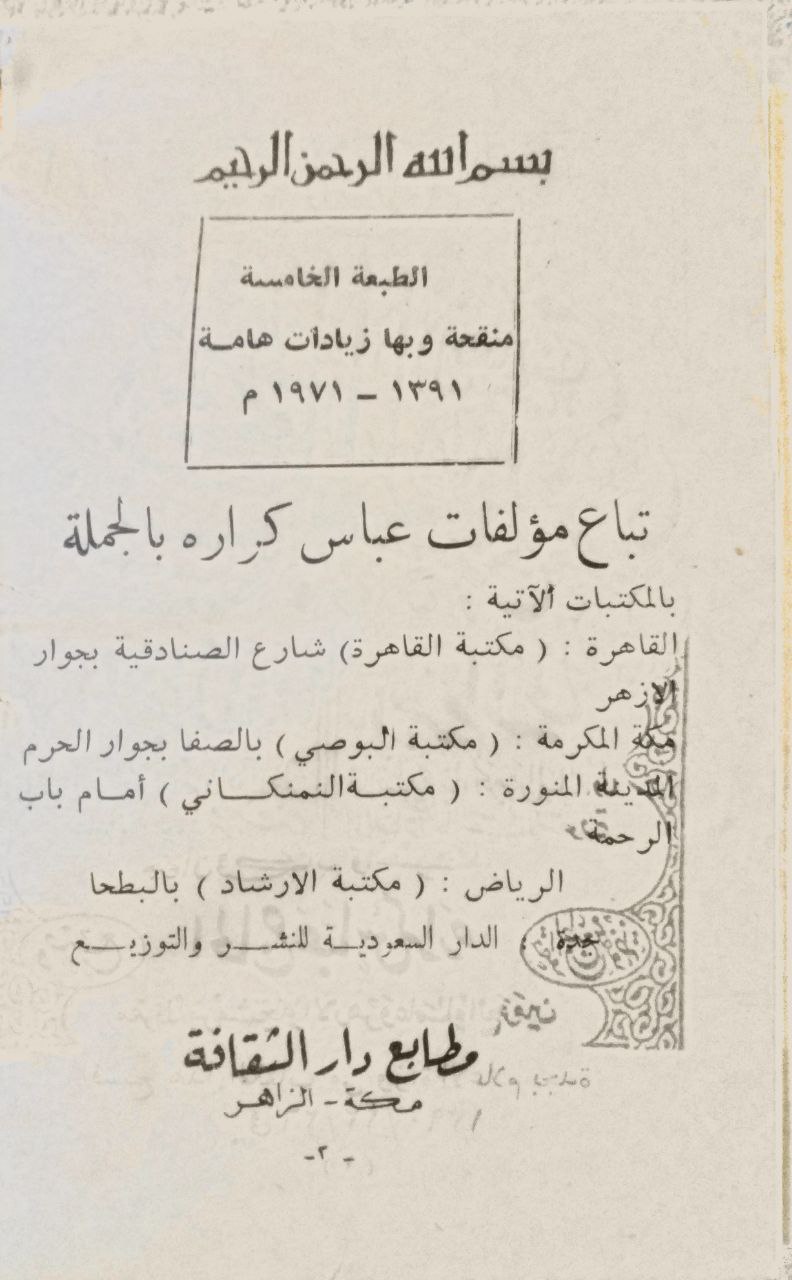 بسم الله الرحمن الرحيم
الطبعة الخامسة
منقحة وبها زيادات هامــة
١٣٩١ – ١٩٧١ م
تباع مؤلفات عباس كراره بالجملة
بالمكتبات الآتية :
القاهرة : ( مكتبة القاهرة) شارع الصنادقية بجوار
الازهر
مكة المكرمة : ( مكتبة البوصي ) بالصفا بجوار الحرم
المدينة المنورة : ( مكتبــةالنمنكـــاني ) أمــام باب
الرحمة
الرياض : ( مكتبة الارشاد ) بالبطحا
جدة : الدار السعوديــة للنشــر والتوزيــع
مطابع دار الثقافة
مكة - الزاهر
- ٢ -